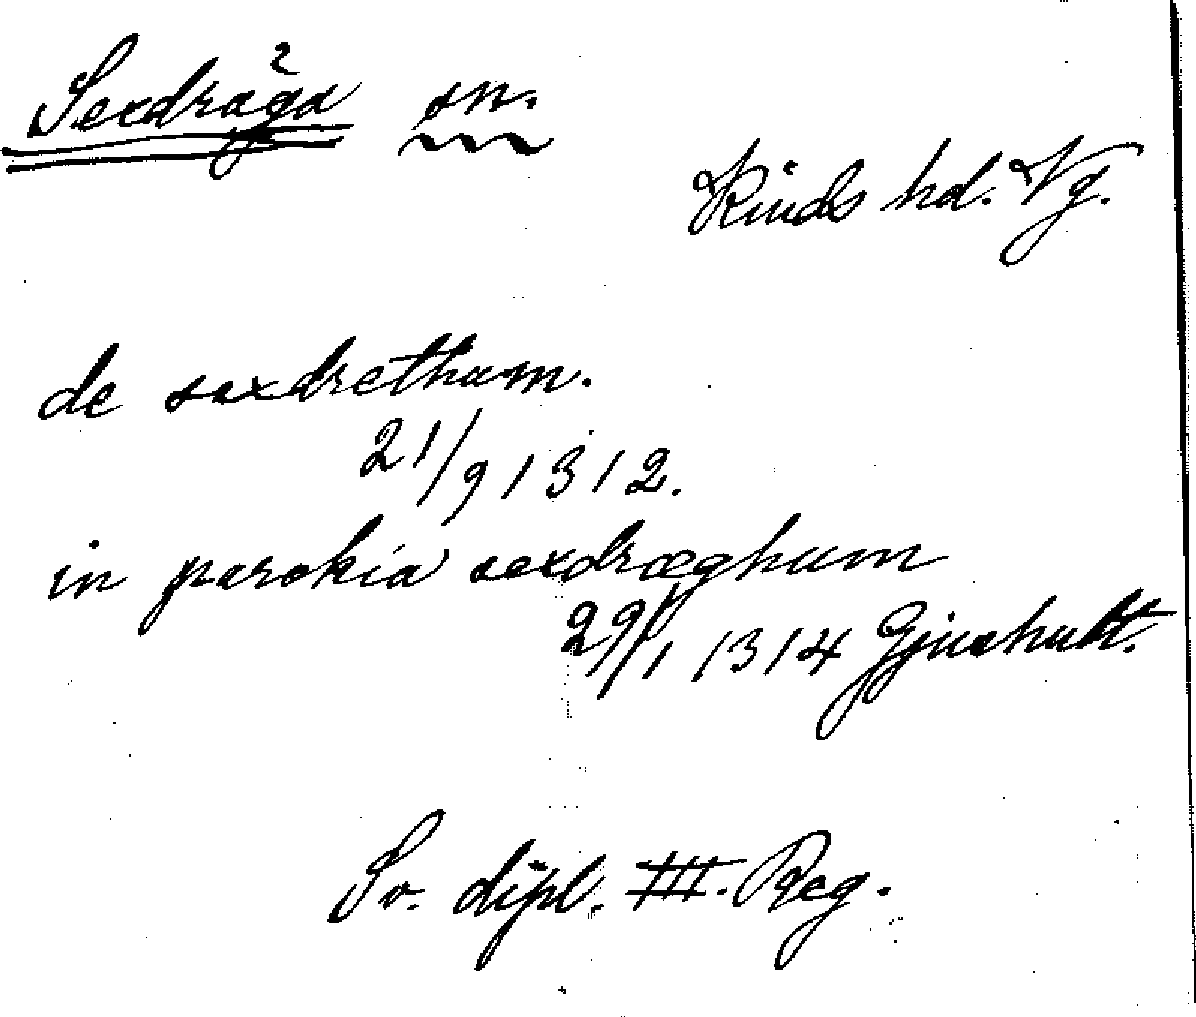 Sexdräga sn.
Kinds hd. Vg.
de saxdrethum.
21/9 1312.
in parokia sexdræghum
29/1 1314 Gjuxhult.
Sv. dipl. III. Reg.